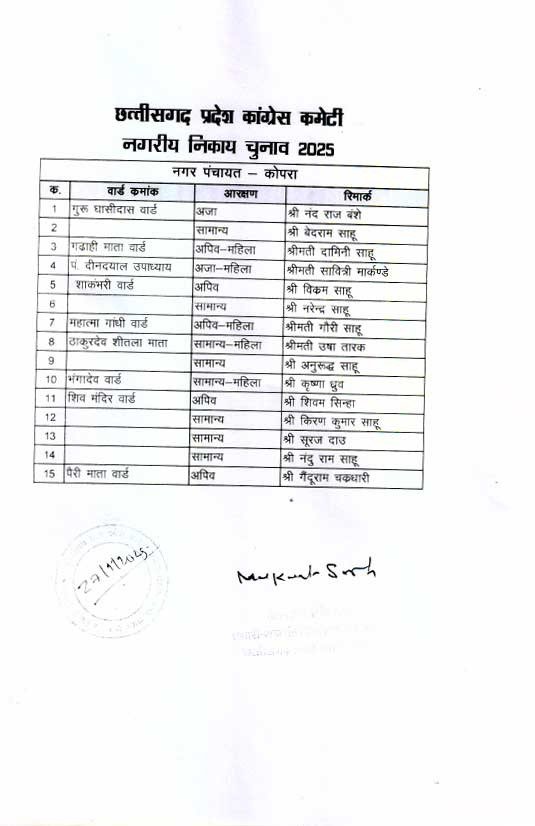 छत्तीसगढ़ प्रदेश कांग्रेस कमेटी
नगरीय निकाय चुनाव 2025
नगर पंचायत – कोपरा
क. वार्ड कमांक आरक्षण रिमार्क
1 गुरू घासीदास वार्ड अजा श्री नंद राज बंशे
2 सामान्य श्री बेदराम साहू
3 गढाही माता वार्ड अपिव–महिला श्रीमती दामिनी साहू
4 पं. दीनदयाल उपाध्याय अजा–महिला श्रीमती सावित्री मार्कण्डे
5 शाकंभरी वार्ड अपिव श्री विकम साहू
6 सामान्य श्री नरेन्द्र साहू
7 महात्मा गांधी वार्ड अपिव–महिला श्रीमती गौरी साहू
8 ठाकुरदेव शीतला माता सामान्य–महिला श्रीमती उषा तारक
9 सामान्य श्री अनुरूद्ध साहू
10 भंगादेव वार्ड सामान्य–महिला श्री कृष्णा ध्रुव
11 शिव मंदिर वार्ड अपिव श्री शिवम सिन्हा
12 सामान्य श्री किरण कुमार साहू
13 सामान्य श्री सूरज दाउ
14 सामान्य श्री नंदु राम साहू
15 पैरी माता वार्ड अपिव श्री गैंदूराम चकधारी
27/1/2025